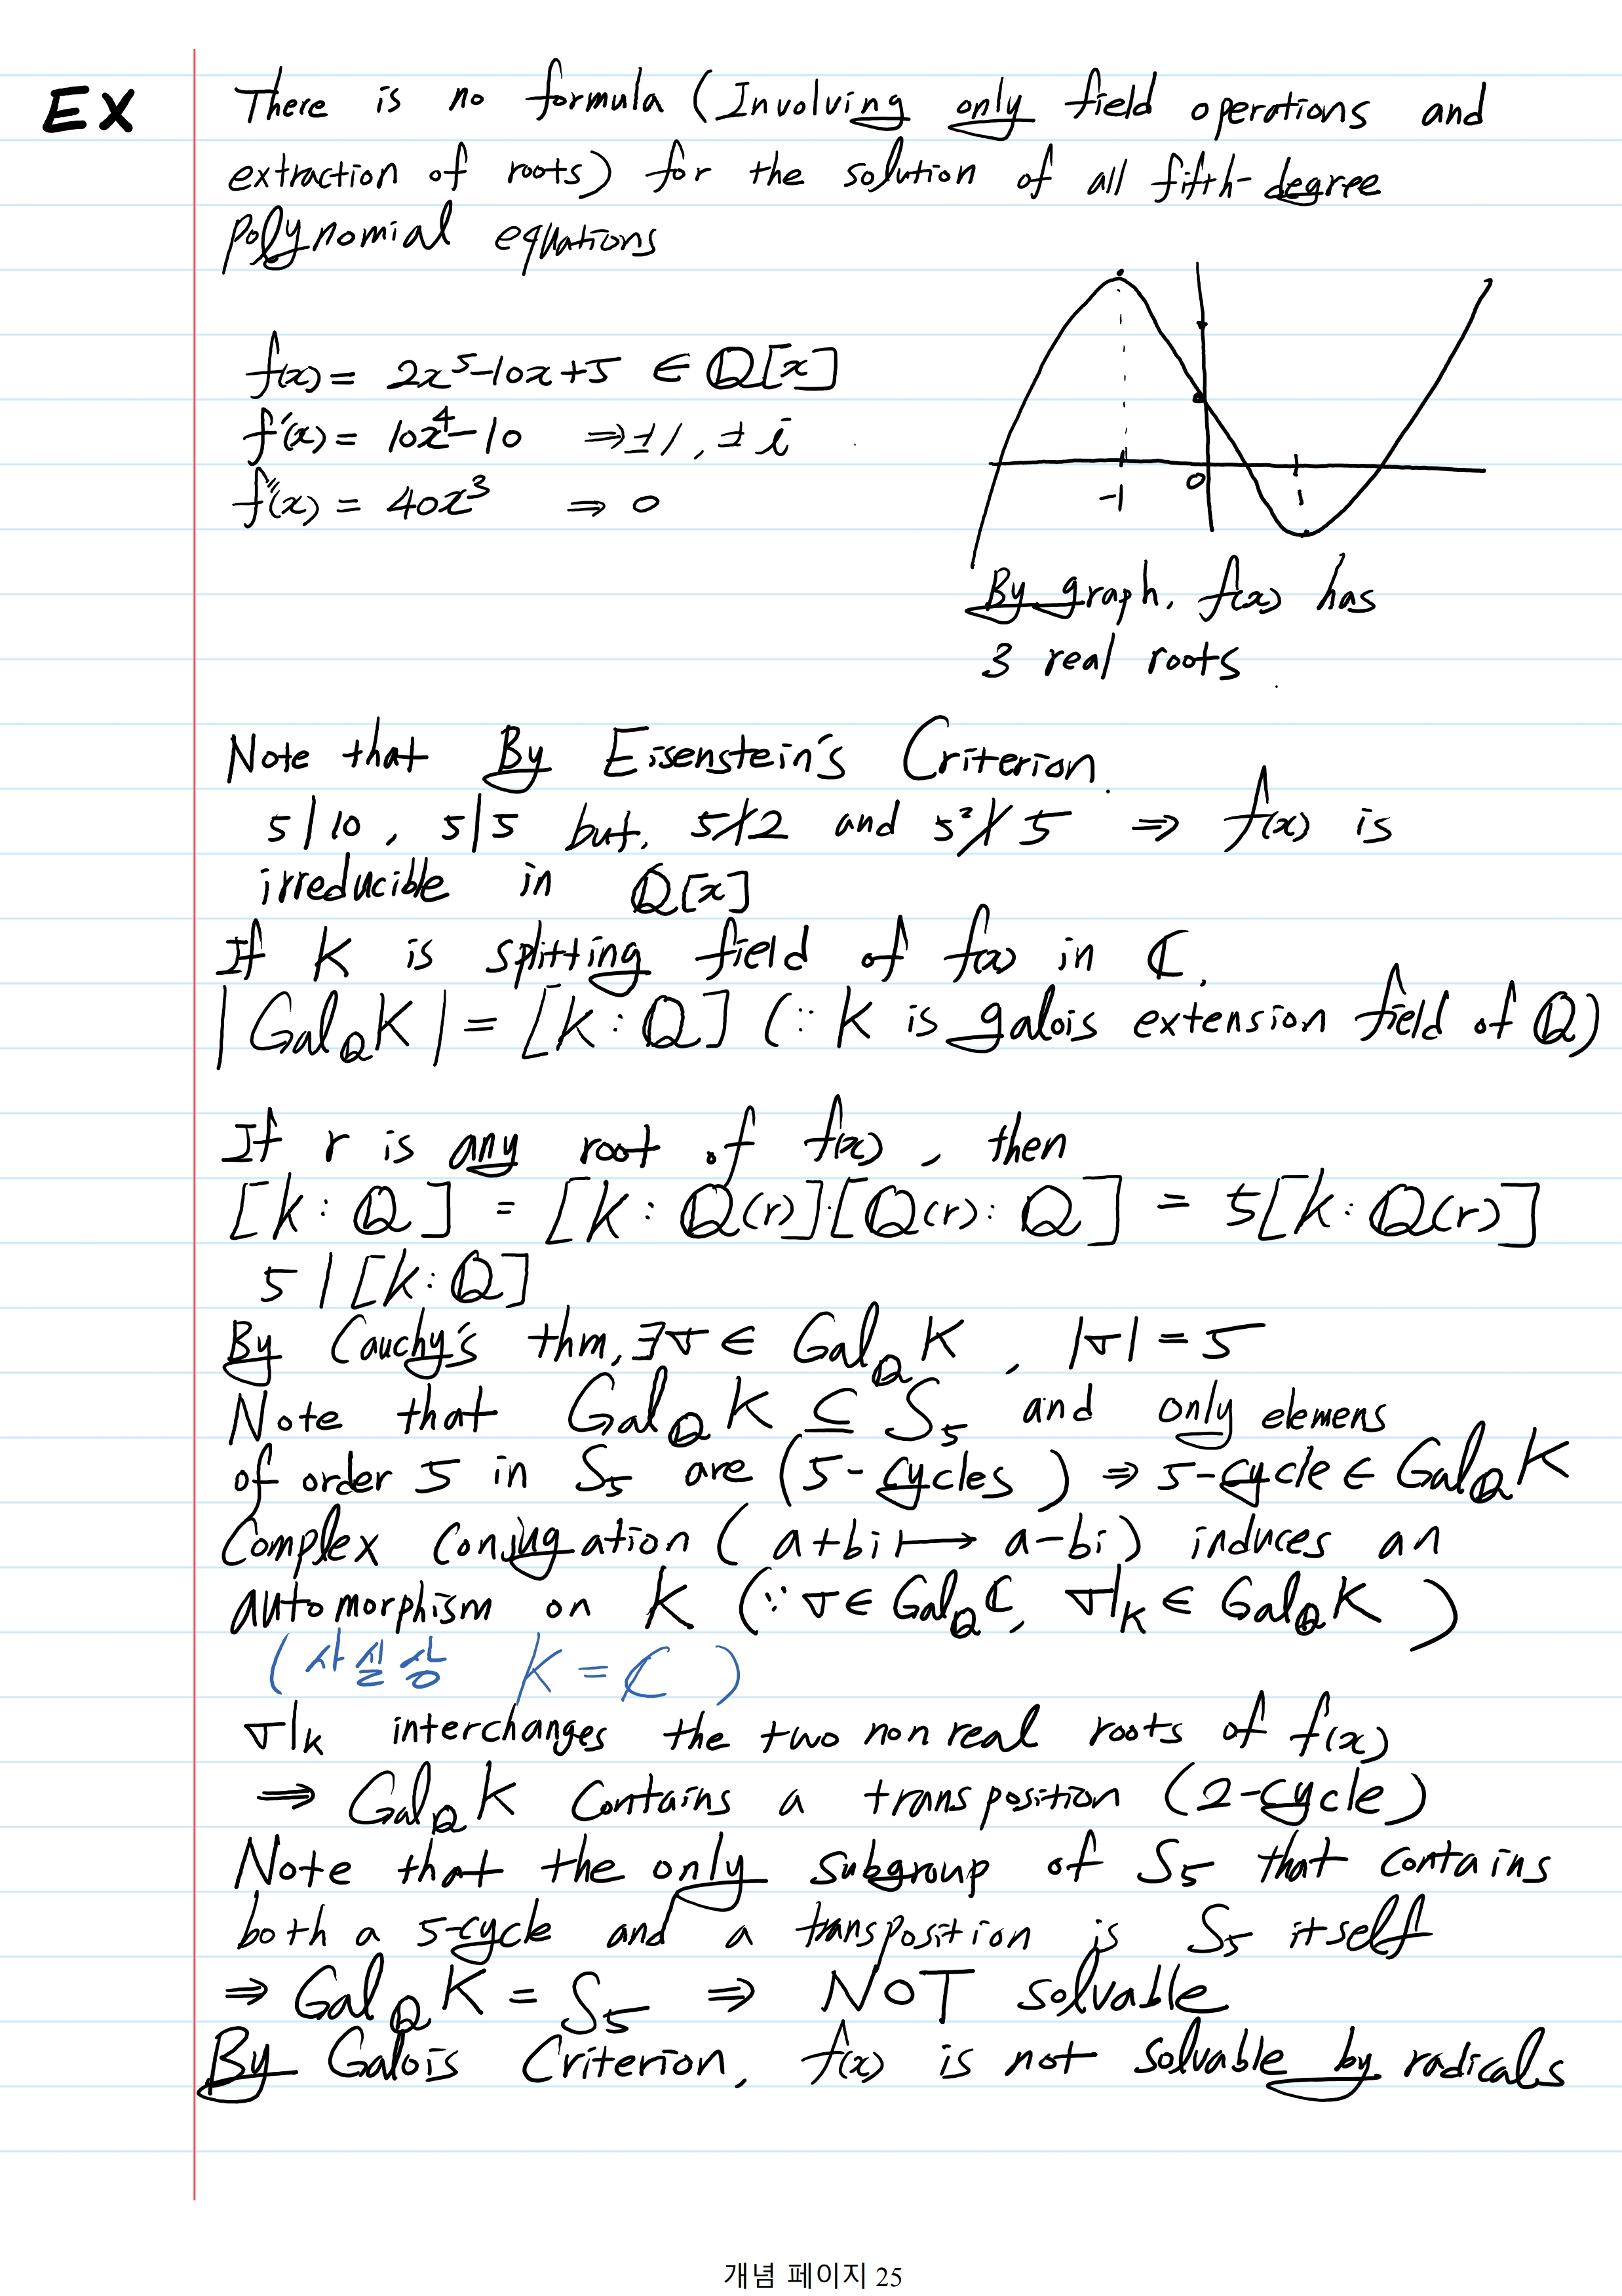 EX
There is no formula (Involving only field operations and
extraction of roots) for the solution of all fifth-degree
polynomial equations
f(x) = 2x⁵-10x+5 ∈ ℚ[x]
f'(x) = 10x⁴-10 ⇒ ±1, ±i
f''(x) = 40x³ ⇒ 0
-1 0 1
By graph, f(x) has
3 real roots
Note that By Eisenstein's Criterion.
5|10, 5|5 but, 5∤2 and 5²∤5 ⇒ f(x) is
irreducible in ℚ[x]
If K is splitting field of f(x) in ℂ,
|Gal_ℚ K| = [K:ℚ] (∵ K is galois extension field of ℚ)
If r is any root of f(x), then
[K:ℚ] = [K:ℚ(r)]·[ℚ(r):ℚ] = 5[K:ℚ(r)]
5 | [K:ℚ]
By Cauchy's thm, ∃σ ∈ Gal_ℚ K, |σ| = 5
Note that Gal_ℚ K ⊆ S₅ and only elemens
of order 5 in S₅ are (5-cycles) ⇒ 5-cycle ∈ Gal_ℚ K
Complex Conjugation (a+bi ↦ a-bi) induces an
automorphism on K (∵ σ ∈ Gal_ℚ ℂ, σ|_K ∈ Gal_ℚ K)
(사실상 K = ℂ)
σ|_K interchanges the two nonreal roots of f(x)
⇒ Gal_ℚ K Contains a transposition (2-cycle)
Note that the only subgroup of S₅ that contains
both a 5-cycle and a transposition is S₅ itself
⇒ Gal_ℚ K = S₅ ⇒ NOT solvable
By Galois Criterion, f(x) is not solvable by radicals
개념 페이지 25